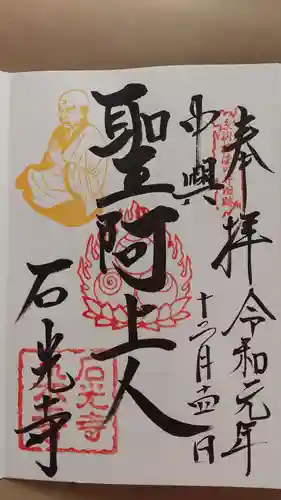 奉拝
令和元年
十二月十四日
中興
聖阿上人
石光寺
石光寺